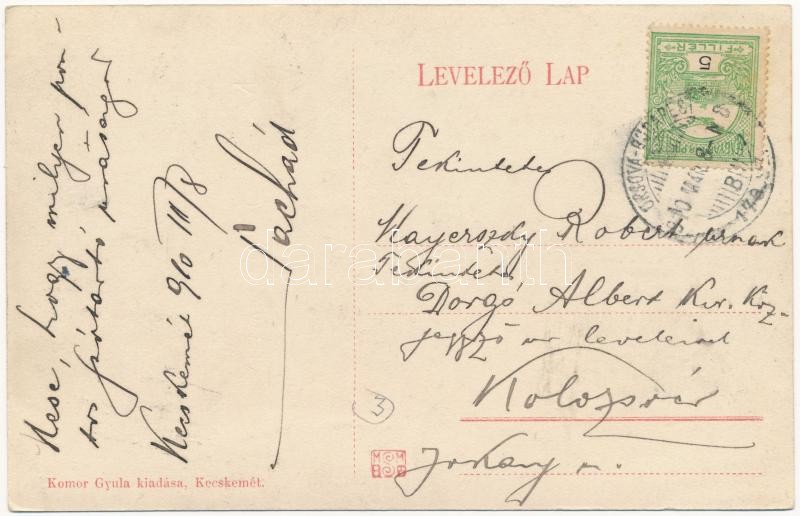 Nese, hogy milyen pon-
tos szótartó vagyok
Kecskemét 910 III/8
LEVELEZŐ LAP
5
FILLÉR
ORSOVA-BUDAPEST
Tekintetes
Robert úrnak
Tekintetes
Dorgó Albert Kir. Köz-
jegyző úr leveleivel
Kolozsvár
Jokay u.
3
Komor Gyula kiadása, Kecskemét.
darabanth